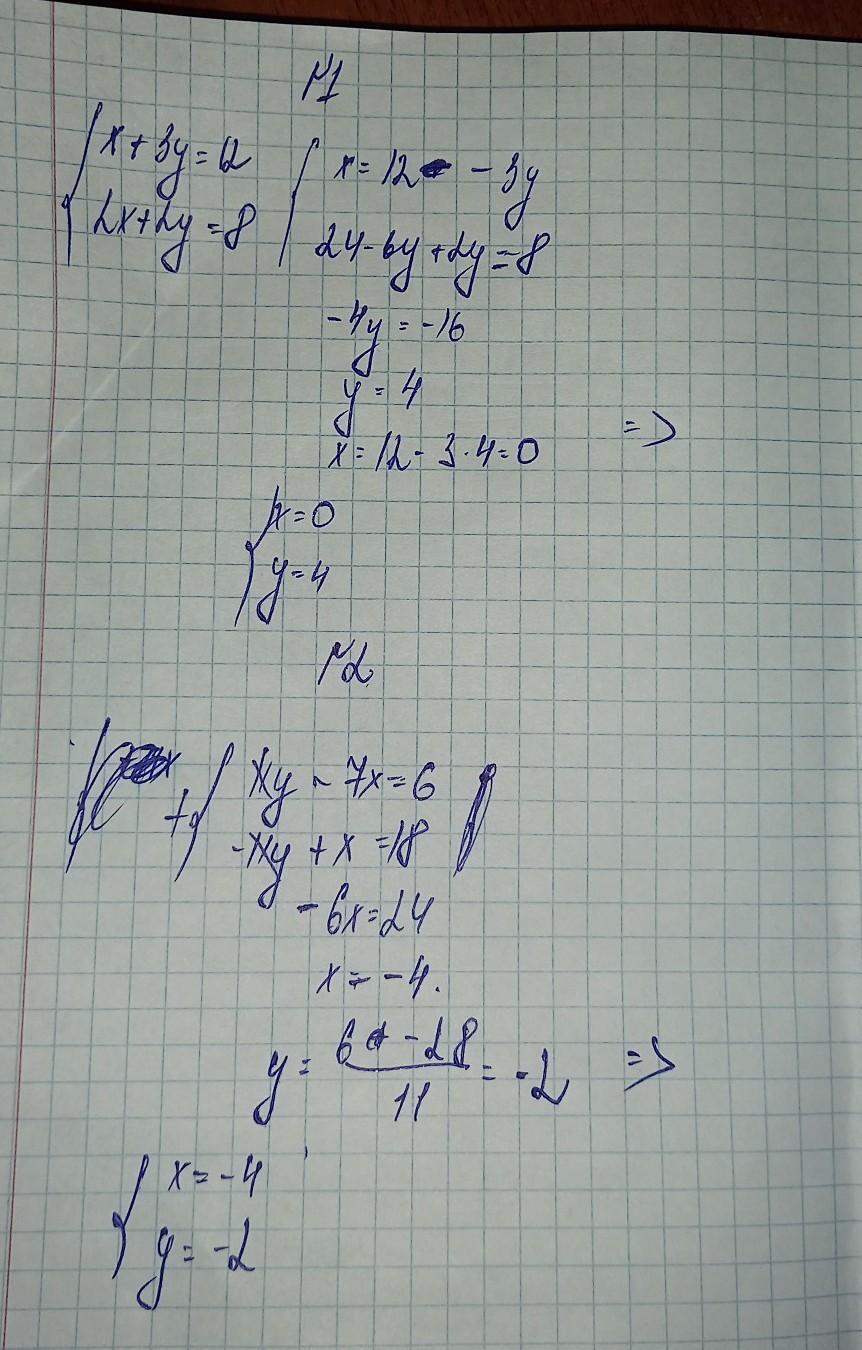 №1
x+3y=12
2x+2y=8
x=12 -3y
24-6y+2y=8
-4y=-16
y=4
x=12-3·4=0 =>
x=0
y=4
№2
+ 11y-7x=6
-11y+x=18
-6x=24
x=-4.
y= (6 -28)/11 = -2 =>
x=-4
y=-2